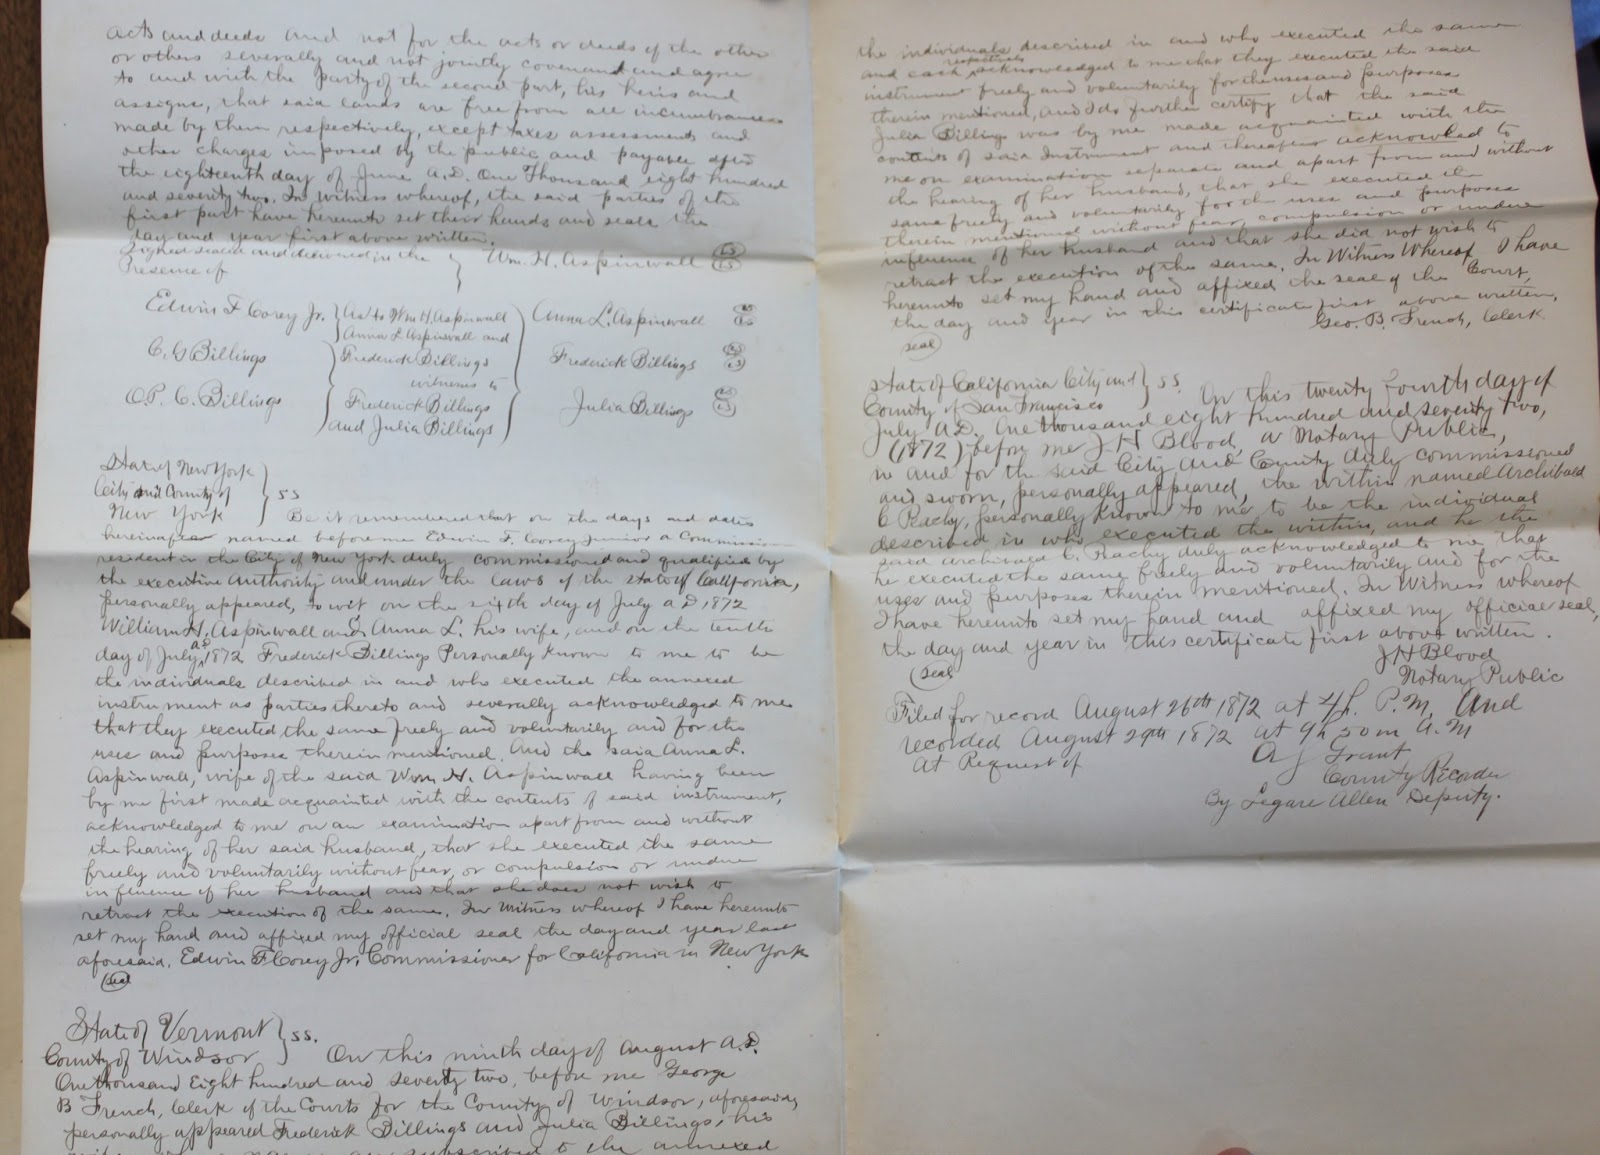 acts and deeds and not for the acts or deeds of the other
or others severally and not jointly covenant and agree
to and with the party of the second part, his heirs and
assigns, that said lands are free from all incumbrances
made by them respectively, except taxes assessments and
other charges imposed by the public and payable after
the eighteenth day of June A.D. One Thousand eight hundred
and seventy two. In Witness whereof, the said parties of the
first part have hereunto set their hands and seals the
day and year first above written.
Signed sealed and delivered in the } Wm. H. Aspinwall LS
Presence of
Edwin F Corey Jr. } As to Wm H. Aspinwall } Anna L. Aspinwall
Anna L Aspinwall and
C. G Billings } Frederick Billings Frederick Billings
witnesses to
O. P. C. Billings Frederick Billings Julia Billings
and Julia Billings
State of New York }
City and County of } ss
New York } Be it remembered that on the days and dates
hereinafter named before me Edwin F. Corey Junior a Commissioner
resident in the City of New York duly commissioned and qualified by
the executive Authority and under the laws of the State of California,
personally appeared, to wit on the sixth day of July a D 1872
William H. Aspinwall and Anna L. his wife, and on the tenth
day of July A D 1872 Frederick Billings Personally known to me to be
the individuals described in and who executed the annexed
instrument as parties thereto and severally acknowledged to me
that they executed the same freely and voluntarily and for the
uses and purposes therein mentioned. And the said Anna L.
Aspinwall, wife of the said Wm H. Aspinwall having been
by me first made acquainted with the contents of said instrument,
acknowledged to me on an examination apart from and without
the hearing of her said husband, that she executed the same
freely and voluntarily without fear, or compulsion or undue
influence of her husband and that she does not wish to
retract the execution of the same. In Witness whereof I have hereunto
set my hand and affixed my official seal the day and year last
aforesaid. Edwin F. Corey Jr. Commissioner for California in New York
seal
State of Vermont } ss.
County of Windsor } On this ninth day of August A.D.
One thousand Eight hundred and seventy two, before me George
B French, Clerk of the Courts for the County of Windsor, aforesaid,
personally appeared Frederick Billings and Julia Billings, his
subscribed to the annexed
the individuals described in and who executed the same
and each respectively acknowledged to me that they executed the said
instrument freely and voluntarily for the uses and purposes
therein mentioned, and I do further certify that the said
Julia Billings was by me made acquainted with the
contents of said Instrument and thereafter acknowled to
me on examination separate and apart from and without
the hearing of her husband, that she executed the
same freely and voluntarily for the uses and purposes
therein mentioned without fear, compulsion or undue
influence of her husband and that she did not wish to
retract the execution of the same. In Witness Whereof I have
hereunto set my hand and affixed the seal of the Court,
the day and year in this certificate first above written.
Geo. B. French, Clerk
seal
State of California City and } ss.
County of San Francisco } On this twenty fourth day of
July A.D. One thousand eight hundred and seventy two,
(1872) before me J H Blood, a Notary Public,
in and for the said City and County duly commissioned
and sworn, personally appeared, the within named Archibald
C Peachy, personally known to me to be the individual
described in who executed the within, and he the
said Archibald C. Peachy duly acknowledged to me that
he executed the same freely and voluntarily and for the
uses and purposes therein mentioned. In Witness whereof
I have hereunto set my hand and affixed my official seal,
the day and year in this certificate first above written.
J H Blood
seal Notary Public
Filed for record August 26th 1872 at 4h. P.M. And
recorded August 29th 1872 at 9h 50m A.M
At Request of A J Grant
County Recorder
By Legare Allen Deputy.